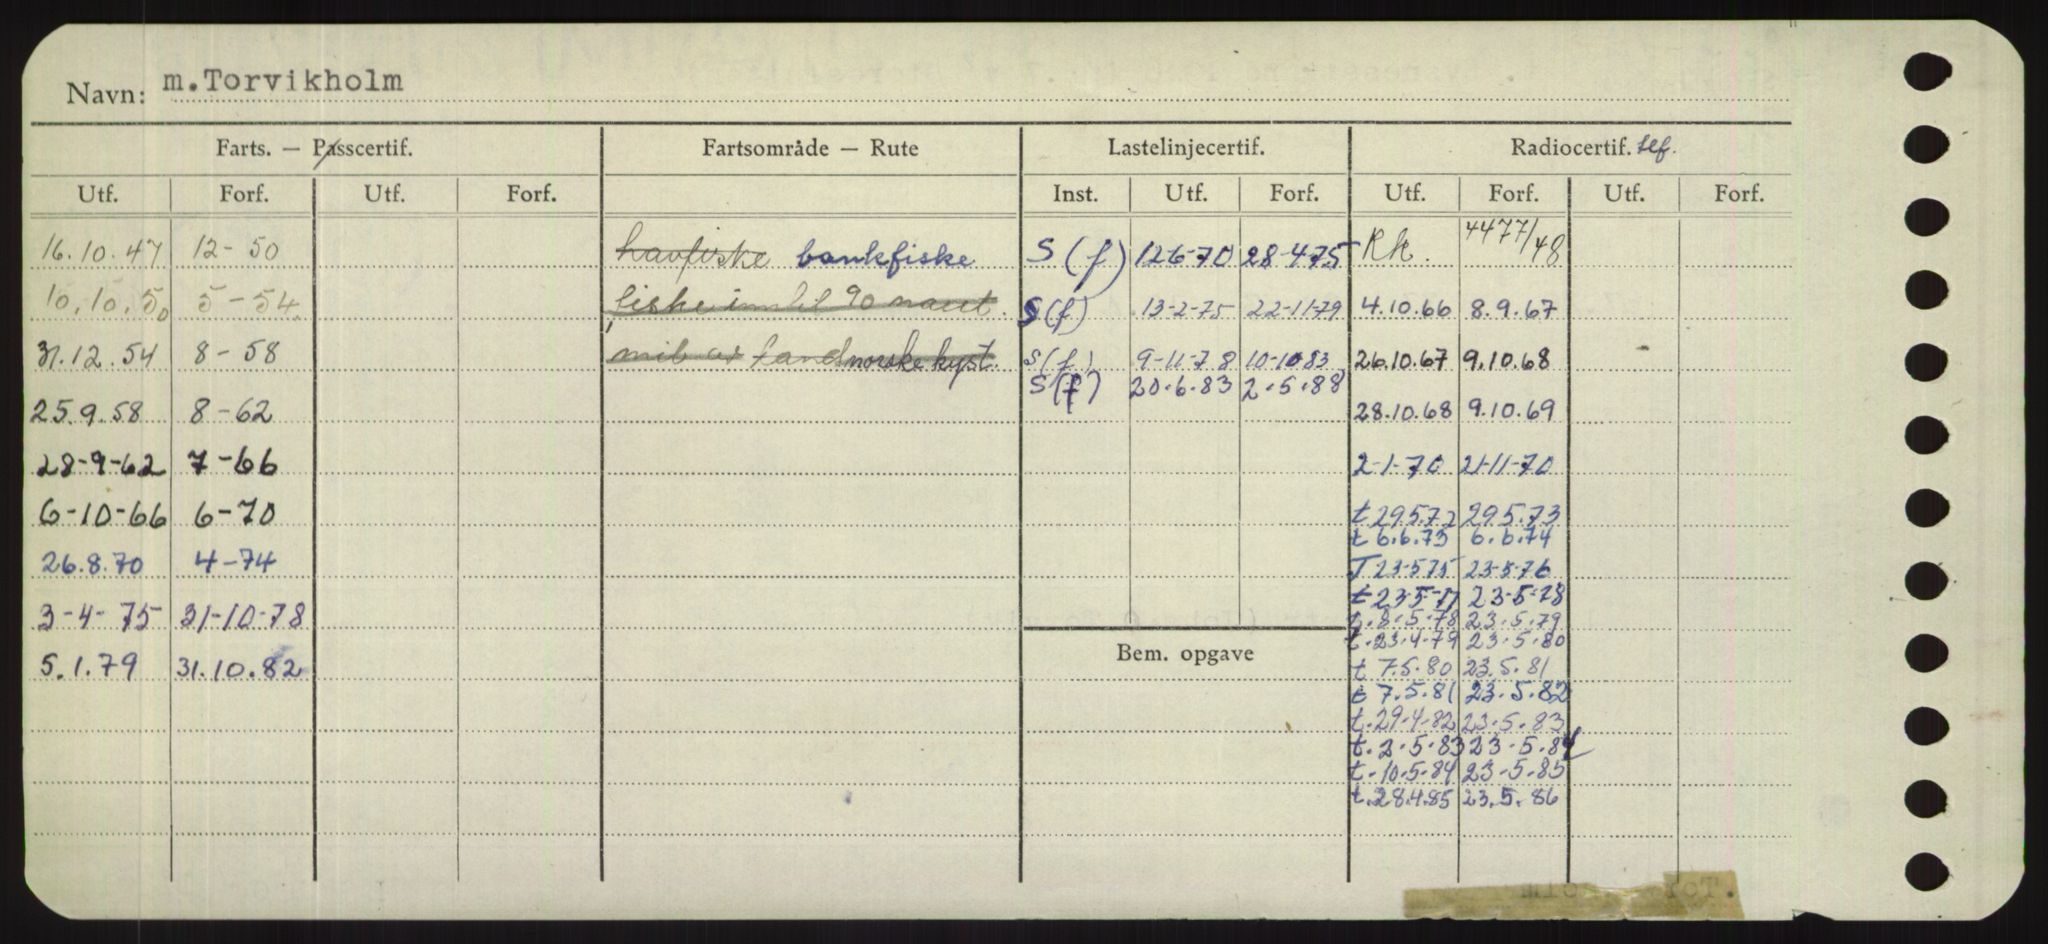 Navn: m.Torvikholm
Farts. — Passcertif. Fartsområde — Rute Lastelinjecertif. Radiocertif. tlf.
Utf. Forf. Utf. Forf. Inst. Utf. Forf. Utf. Forf. Utf. Forf.
16.10.47 12-50 havfiske bankfiske S(f) 12-6-70 28-4-75 Rk. 4477/48
10.10.50 5-54. fiske inntil 90 naut. S(f) 13-2-75 22-11-79 4.10.66 8.9.67
31.12.54 8-58 mil av land norske kyst. S(f) 9-11-78 10-10-83 26.10.67 9.10.68
S(f) 20.6.83 2.5.88
25.9.58 8-62 28.10.68 9.10.69
28-9-62 7-66 2-1-70 21-11-70
6-10-66 6-70 t 29.5.72 29.5.73
t 6.6.73 6.6.74
26.8.70 4-74 T 23-5-75 23-5-76
t 23-5-77 23-5-78
3-4-75 31-10-78 t. 8-5-78 23.5.79
t. 23-4-79 23.5.80
5.1.79 31.10.82 Bem. opgave t 7.5.80 23.5.81
t 7.5.81 23.5.82
t. 29.4.82 23.5.83
t. 2.5.83 23.5.84
t. 10.5.84 23.5.85
t. 28.4.85 23.5.86